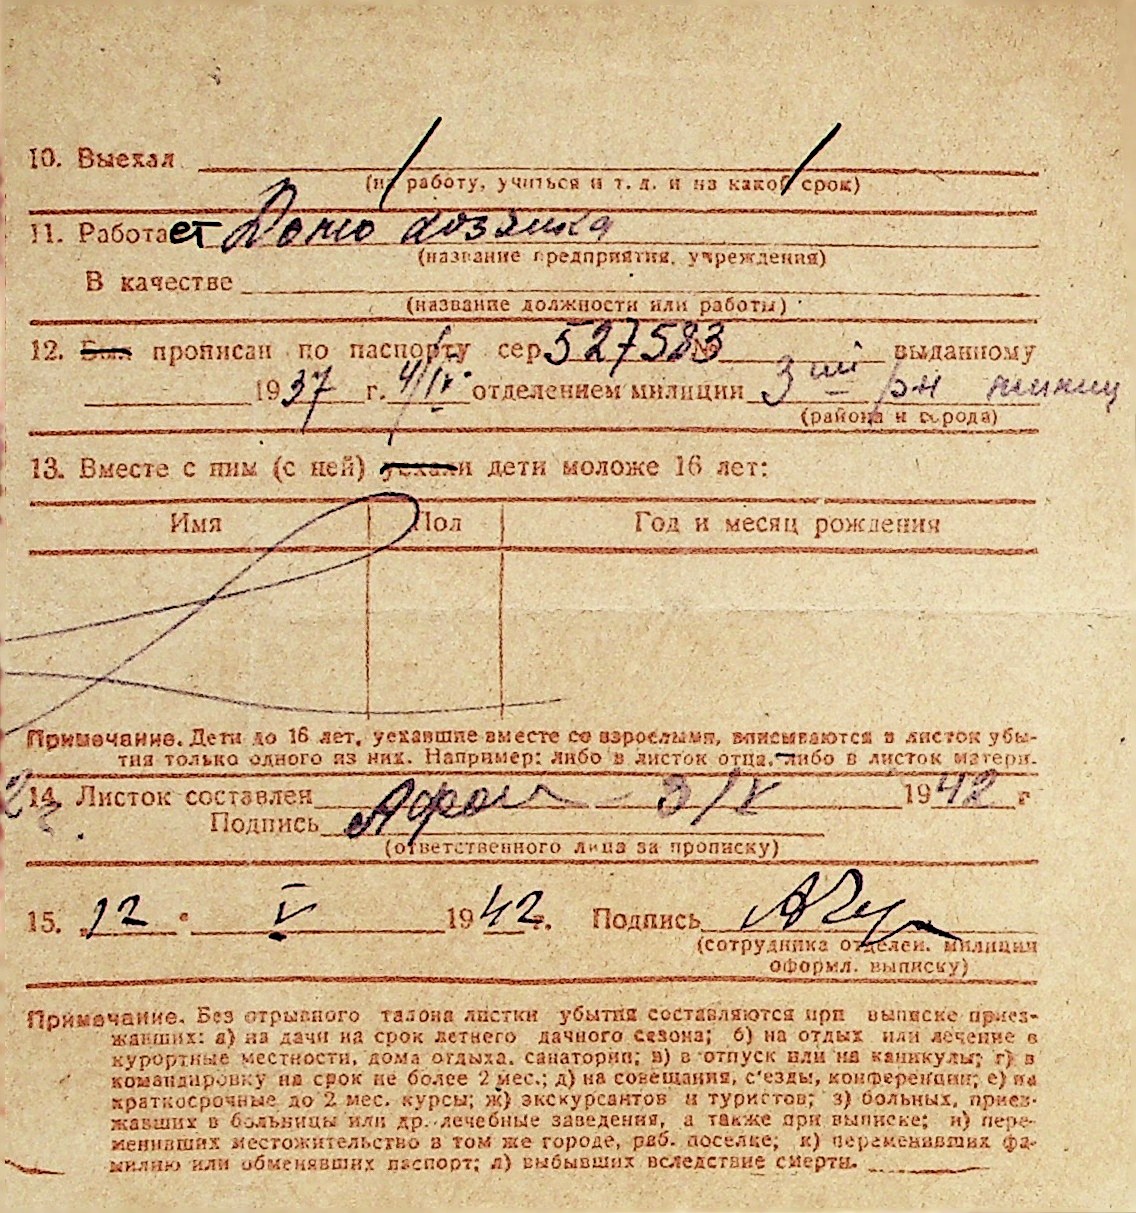 10. Выехал
(на работу, учиться и т. д. и на какой срок)
11. Работает Домо хозяйка
(название предприятия, учреждения)
В качестве
(название должности или работы)
12. Был прописан по паспорту сер. 527583 № выданному
1937 г. 4/IV. отделением милиции 3 ий р/н милиц
(района и города)
13. Вместе с ним (с ней) уехали дети моложе 16 лет:
Имя Пол Год и месяц рождения
Примечание. Дети до 16 лет, уехавшие вместе со взрослыми, вписываются в листок убы-
тия только одного из них. Например: либо в листок отца, либо в листок матери.
14. Листок составлен 3/V 1942 г
Подпись
(ответственного лица за прописку)
15. 12 • V 1942 г. Подпись
(сотрудника отделен. милиции
оформл. выписку)
Примечание. Без отрывного талона листки убытия составляются при выписке приез-
жавших: а) на дачи на срок летнего дачного сезона; б) на отдых или лечение в
курортные местности, дома отдыха, санатории; в) в отпуск или на каникулы; г) в
командировку на срок не более 2 мес.; д) на совещания, с'езды, конференции; е) на
краткосрочные до 2 мес. курсы; ж) экскурсантов и туристов; з) больных, приез-
жавших в больницы или др. лечебные заведения, а также при выписке; и) пере-
менивших местожительство в том же городе, раб. поселке; к) переменивших фа-
милию или обменявших паспорт; л) выбывших вследствие смерти.